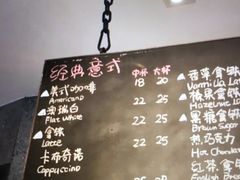 经典意式 中杯 大杯
美式咖啡 18 20
Americano
澳瑞白 22 25
Flat White
拿铁 22 25
Latte
卡布奇诺 22 25
Cappuccino
香草拿铁
Vanilla La
榛果拿铁
Hazelnut La
黑糖拿铁
Brown Sugar
热巧克力
Hot Chocolat
红茶拿铁
English Brea